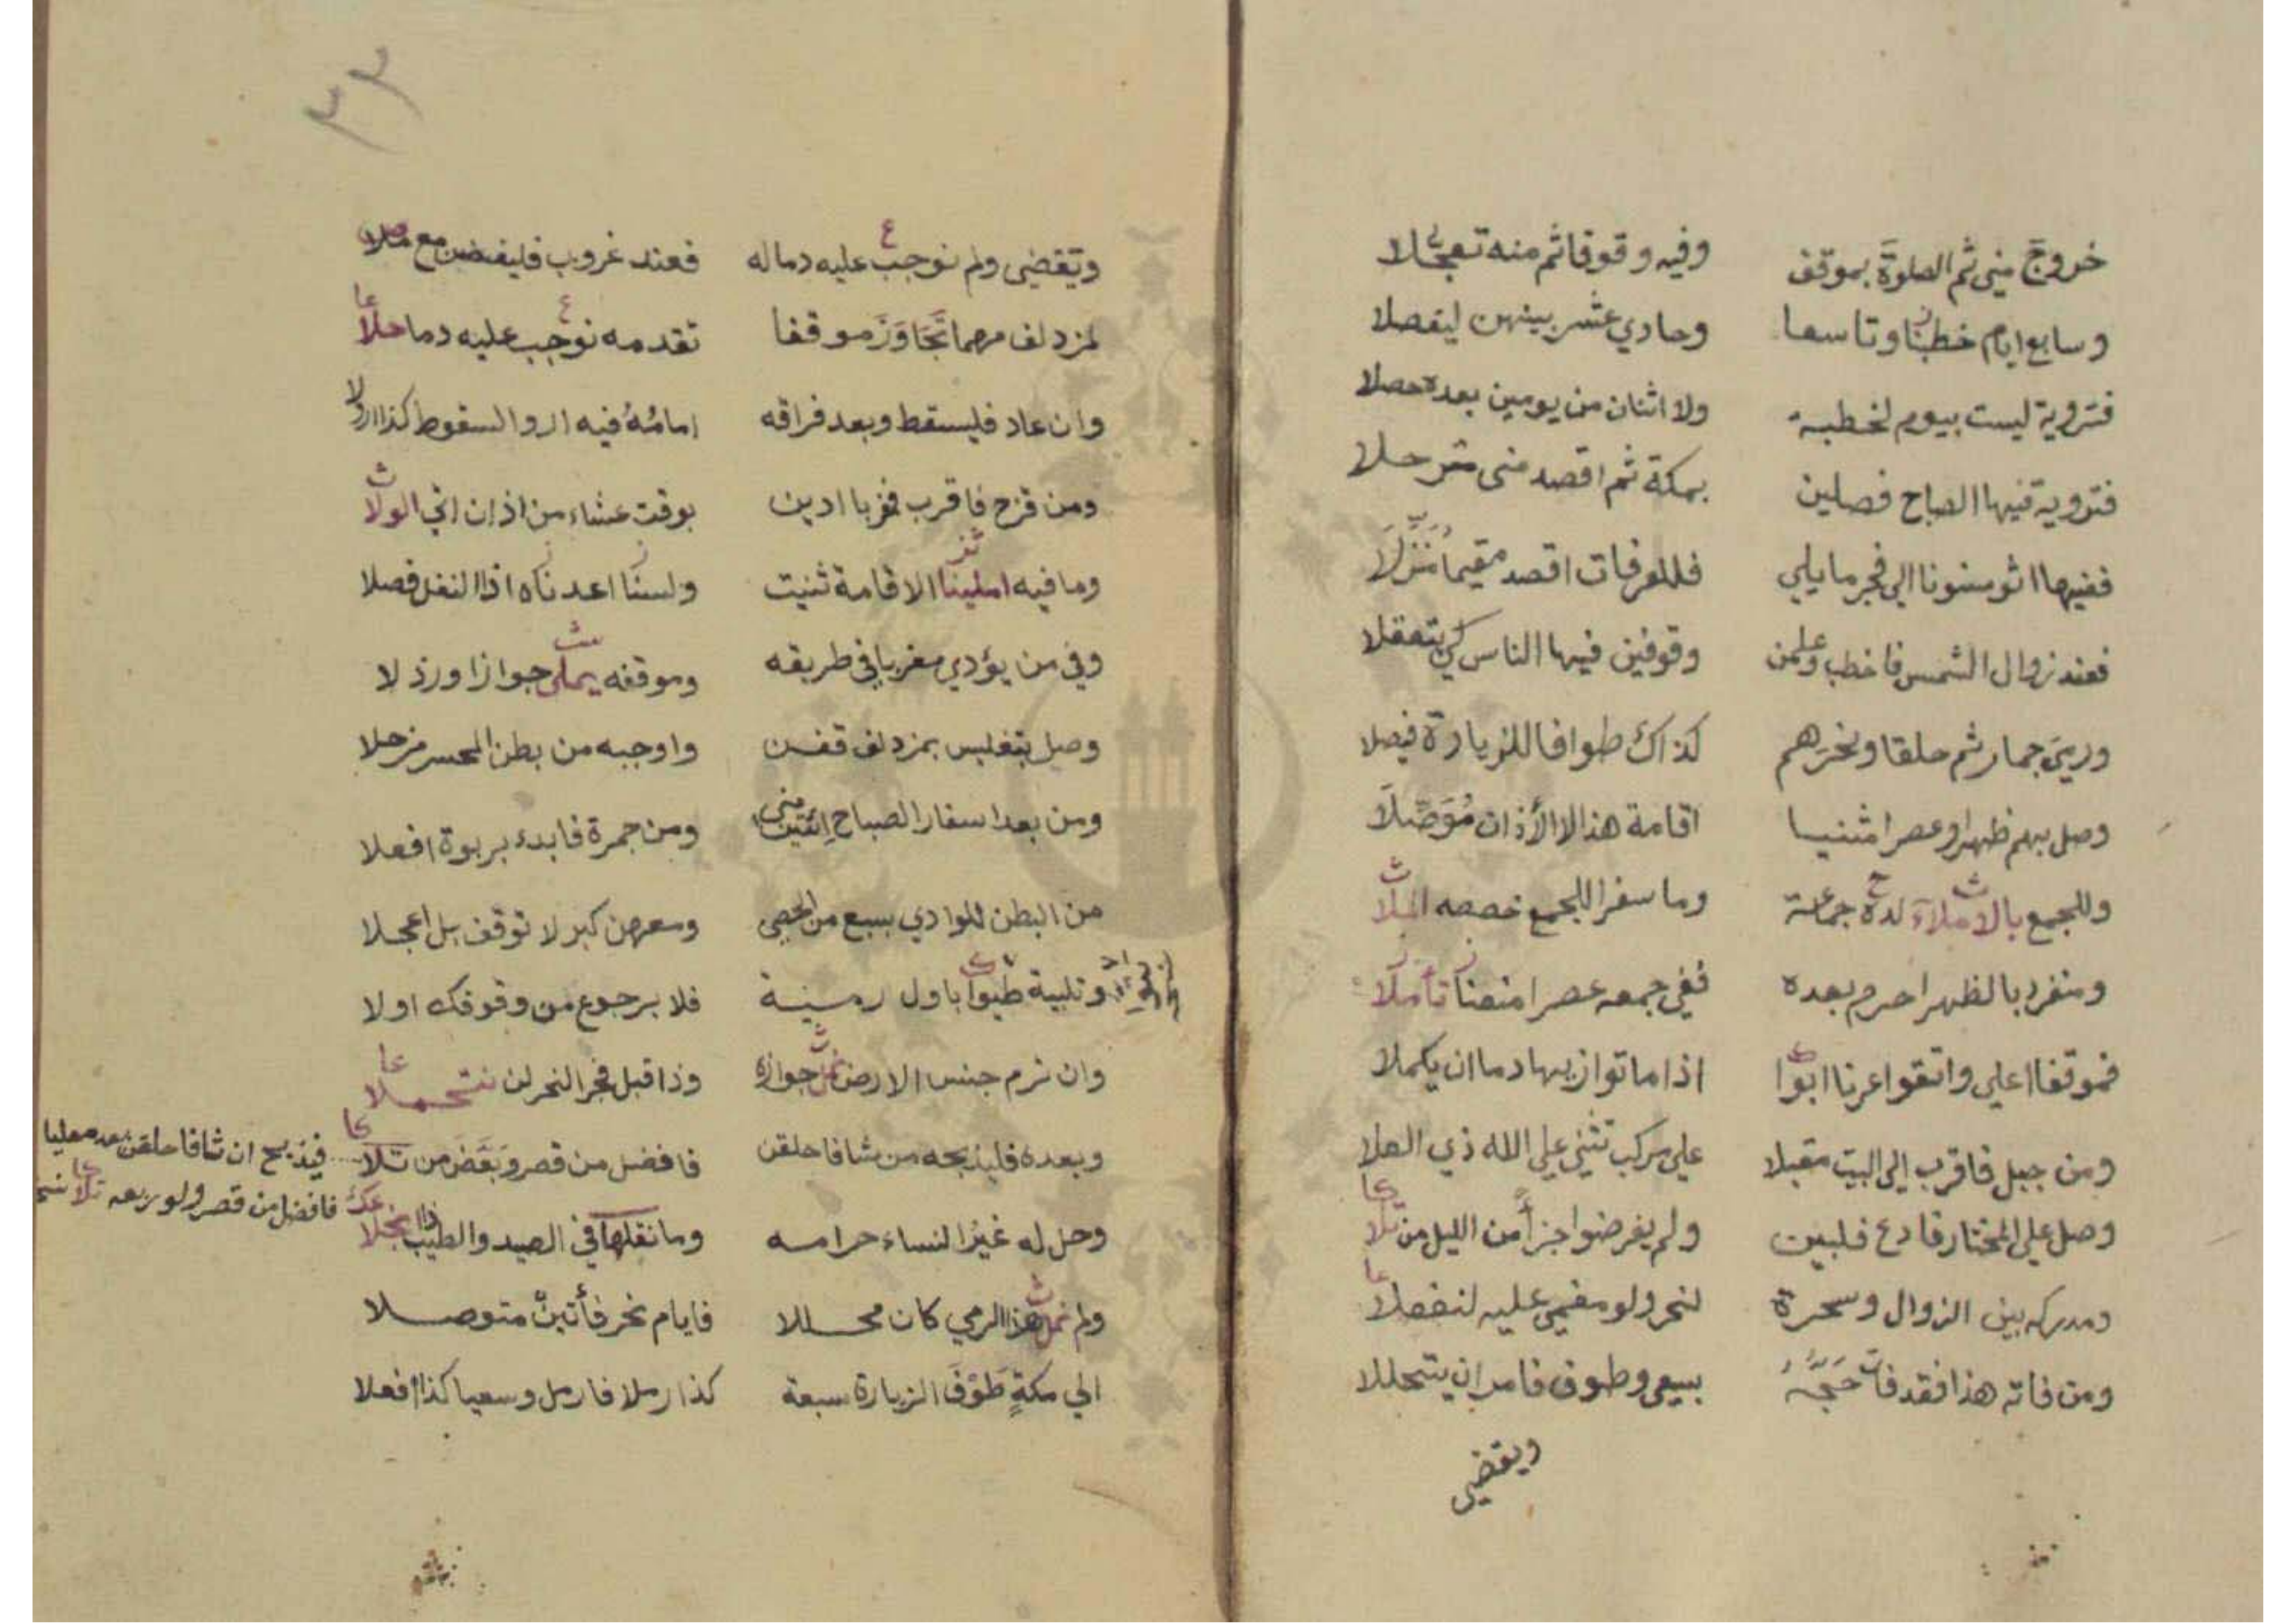 خروج منى ثم الصلوة بموقف وفيه وقوفا ثم منه تعجلا
وسابع ايام خطبنا وتاسعا وحادي عشر بينهن ليفصلا
فتروية ليست بيوم لخطبة ولا اثنان من يومين بعده حصلا
فتروية فيها الصباح فصلين بمكة ثم اقصد منى مترحلا
ففيها اثو مسنونا الي فجر ما يلي فللعرفات اقصد مقيما منزلا
فعند زوال الشمس فاخطب وعلمن وقوفين فيها الناس كي يتعقلا
ورمي جمار ثم حلقا ونحرهم كذاك طوافا للزيارة فيصلا
وصل بهم ظهرا وعصرا مثنيا اقامة هذا لا الأذان موصلا
وللجمع بالاملاء لده جماعة وما سفرا للجمع خصصه الملا
ومنفرد بالظهر احرم بعده ففي جمعه عصرا منعنا تأملا
فموقفا اعلي واتقوا عرنا ابوا اذا ما تواز بها دما ان يكملا
ومن جبل فاقرب الي البيت مقبلا علي مركب تثني علي الله ذي العلا
وصل علي المختار فادع فلبين ولم يفرضوا جزأ من الليل من تلا
ومدركه بين الزوال وسحرة لنحر ولو مغمي عليه لنفصلا
ومن فاته هذا فقد فات حجه بسعي وطوف فامر ان يتحللا
ويقضي
٣٣
ويقضي ولم نوجب عليه دما له فعند غروب فليفضن مع
لمزدلف مهما تجاوز موقفا تقدمه نوجب عليه دما حلا
وان عاد فليسقط وبعد فراقه امامه فيه ارو السقوط كذا ارولا
ومن قزح فاقرب فمغربا ادين بوقت عشاء من اذان اتي الولا
وما فيه املينا الاقامة ثنيت ولسنا اعدناه اذا النفل فصلا
وفي من يؤدي مغربا في طريقه وموقفه يملي جوازا ورذلا
وصل بتغليس بمزدلف قفن واوجبه من بطن المحسر مزحلا
ومن بعد اسفار الصباح ائتين منى ومن جمرة فابدء بربوة افعلا
من البطن للوادي بسبع من الحصي ومعهن كبر لا توقف بل اعجلا
وتلبية طبوا باول رمية فلا برجوع من وقوفك اولا
وان ترم جنس الارض نمل جوازه وذا قبل فجر النحر لن نتحملا
وبعده فليذبحه من شافا حلقن فافضل من قصر وبعض من تلا
فيذبح ان شافا حلقن بعد معليا
فافضل من قصر ولو ربعه تلا
وحل له غير النساء حرامه وما نقلها في الصيد والطيب
ولم نمل هذا الرمي كان محللا فايام نحر فأتين متوصلا
الي مكة طوف الزيارة سبعة كذا رملا فارمل وسعيا كذا افعلا